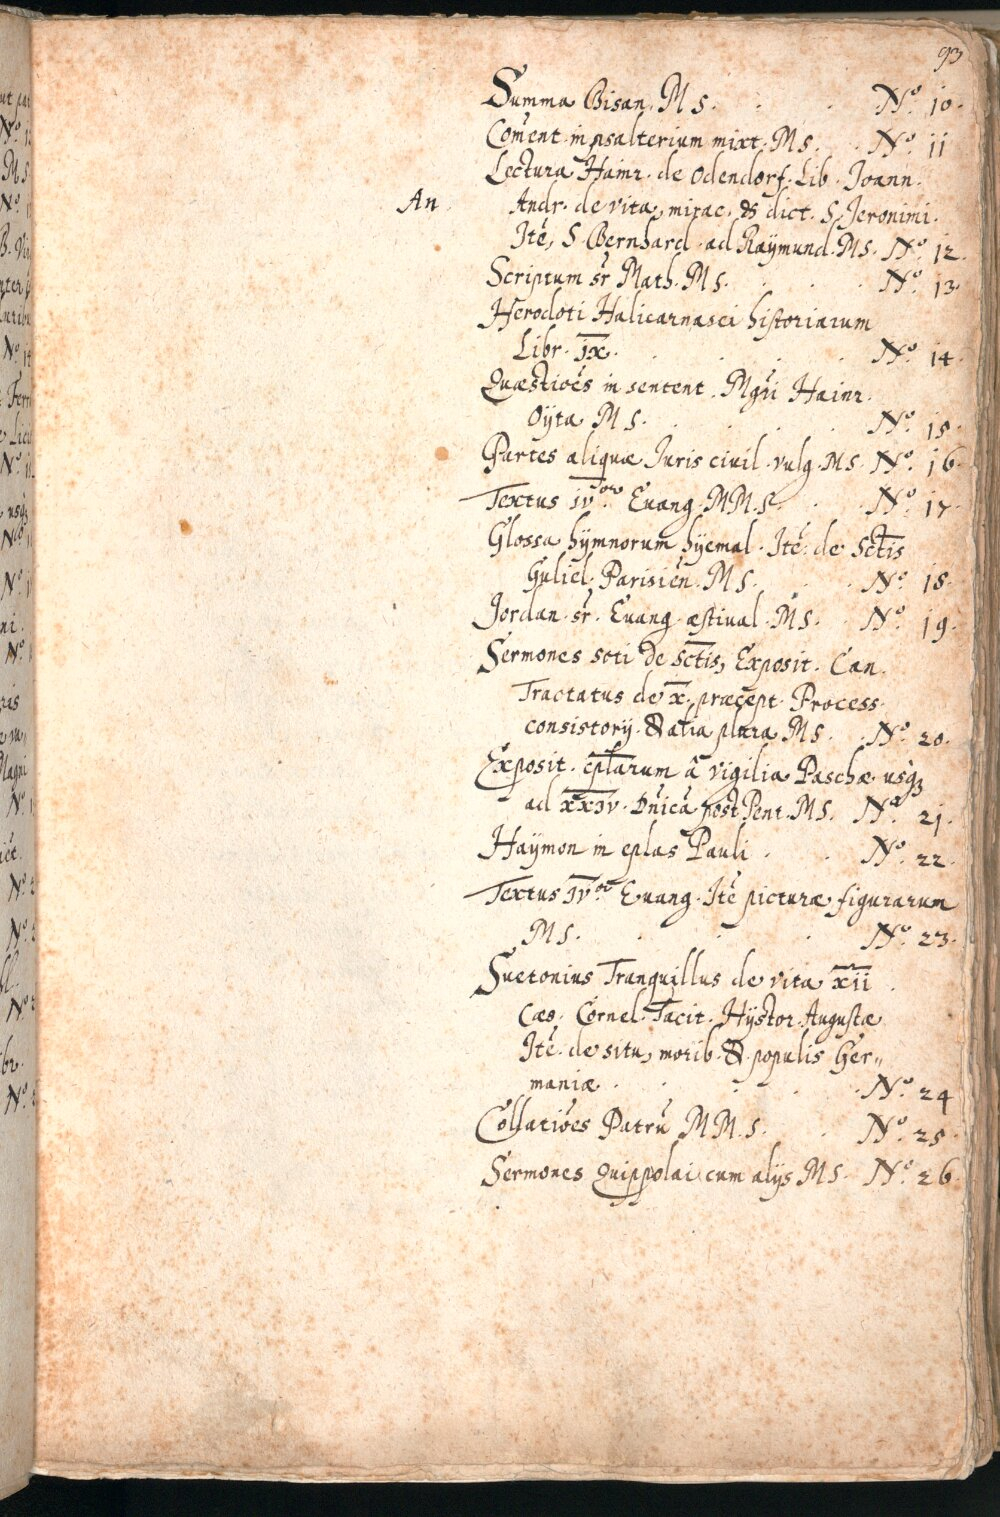 93
Summa Bisan. MS. N.º 10.
Coment in psalterium mixt. MS. N.º 11
Lectura Hainr. de Odendorf. Lib. Joann.
An. Andr. de vita, mirac. & dict. S. Jeronimi.
Itē, S. Bernhard. ad Raÿmund. MS. N.º 12
Scriptum sr̄ Math. MS. N.º 13.
Herodoti Halicarnasei historiarum
Libr. IX. N.º 14.
Quæstiōēs in sentent. Mgr̄i Hainr.
Oÿta MS. N.º 15.
Partes aliquæ Iuris ciuil. vulg. MS. N.º 16.
Textus IV.or Euang. MM.S. N.º 17.
Glossa hÿmnorum hÿemal. Itē. de Sctīs
Guliel. Parisien̄. MS. N.º 18.
Jordan. sr̄. Euang. æstiual. MS. N.º 19.
Sermones soti de sctīs, Exposit. Can.
Tractatus de x. præcept. Process.
consistorij. & alia plura MS. N.º 20.
Exposit. ep̄larum â vigilia Paschæ usq3
ad XXIV. Dn̄icā post Pent. MS. N.º 21.
Haÿmon in ep̄las Pauli. N.º 22.
Textus IV.or Euang. Itē picturæ figurarum
MS. N.º 23.
Suetonius Tranquillus de vita XII.
Cæs. Cornel. Tacit. Hÿstor. Augustæ
Itē. de situ, morib. & populis Ger„
maniæ. N.º 24
Collatiōēs Patrū MM.S. N.º 25.
Sermones Quippolai cum alijs MS. N.º 26.